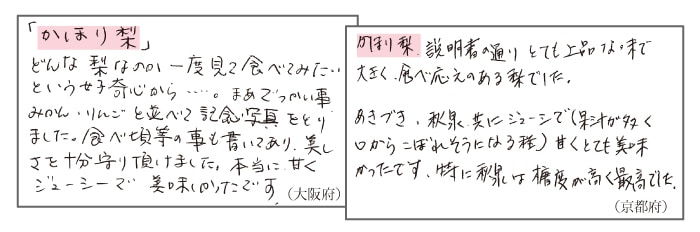 「かほり梨」
どんな梨なのか一度見て食べてみたい
という好奇心から……。まあでっかい事
みかん・りんごと並べて記念写真をとり
ました。食べ頃等の事も書いてあり、美し
さを十分守り頂けました。本当に甘く
ジューシーで 美味しかったです。
（大阪府）
かほり梨、説明者の通りとても上品な味で
大きく、食べ応えのある梨でした。
あきづき、秋泉、共にジューシで(果汁が多く
口からこぼれそうになる程)甘くとても美味
かったです、特に秋泉は糖度が高く最高でした。
（京都府）